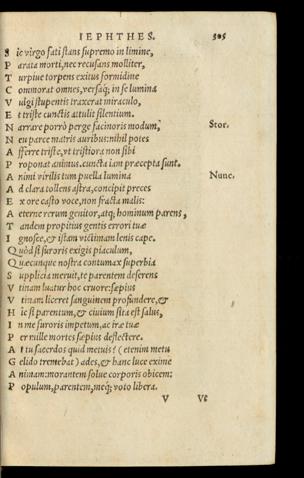 IEPHTHES. 305
S ic virgo fati stans supremo in limine,
P arata morti, nec recusans molliter,
T urpiue torpens exitus formidine
C ommorat omnes, versáq; in se lumina
V ulgi stupentis traxerat miraculo,
E t triste cunctis attulit silentium.
N arrare porrò perge facinoris modum, Stor.
N eu parce matris auribus: nihil potes
A fferre triste, vt tristiora non sibi
P roponat animus. cuncta iam præcepta sunt.
A nimi virilis tum puella lumina Nunc.
A d clara tollens astra, concipit preces
E x ore casto voce, non fracta malis:
A eterne rerum genitor, atq; hominum parens,
T andem propitius gentis errori tuæ
I gnosce, & istam victimam lenis cape.
Q uòd si furoris exigis piaculum,
Q uæcunque nostra contumax superbia
S upplicia meruit, te parentem deserens
V tinam luatur hoc cruore: sæpius
V tinam liceret sanguinem profundere, &
H ic si parentum, & ciuium sita est salus,
I n me furoris impetum, ac iræ tuæ
P er mille mortes sæpius deflectere.
A t tu sacerdos quid metuis? (etenim metu
G elido tremebat) ades, & hanc luce exime
A nimam: morantem solue corporis obicem:
P opulum, parentem, meq; voto libera.
V Vt